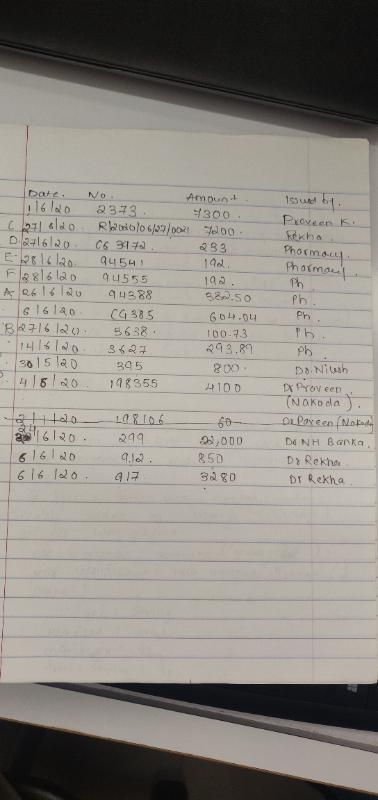 Date. No. Amount. Issued by.
1/6/20 2373. 7300. Praveen K.
C 27/6/20 R/2020/06/27/0021 7200. Rekha.
D 27/6/20 CG 3972. 233 Pharmacy.
E 28/6/20 94541 192. Pharmacy.
F 28/6/20 94555 192. Ph
A 26/6/20 94388 382.50 Ph.
6/6/20 CG385 604.04 Ph.
B 27/6/20. 5638. 100.73 Ph.
14/6/20 3627 293.89 Ph
30/5/20 395 800. Dr. Nilesh
4/5/20 198355 4100 Dr Praveen
(Nakoda).
2/1/20 198106 60 Dr Praveen (Nakoda)
24/6/20 299 22,000 Dr NH Banka.
6/6/20 912. 850 Dr Rekha.
6/6/20. 917. 3280 Dr Rekha.